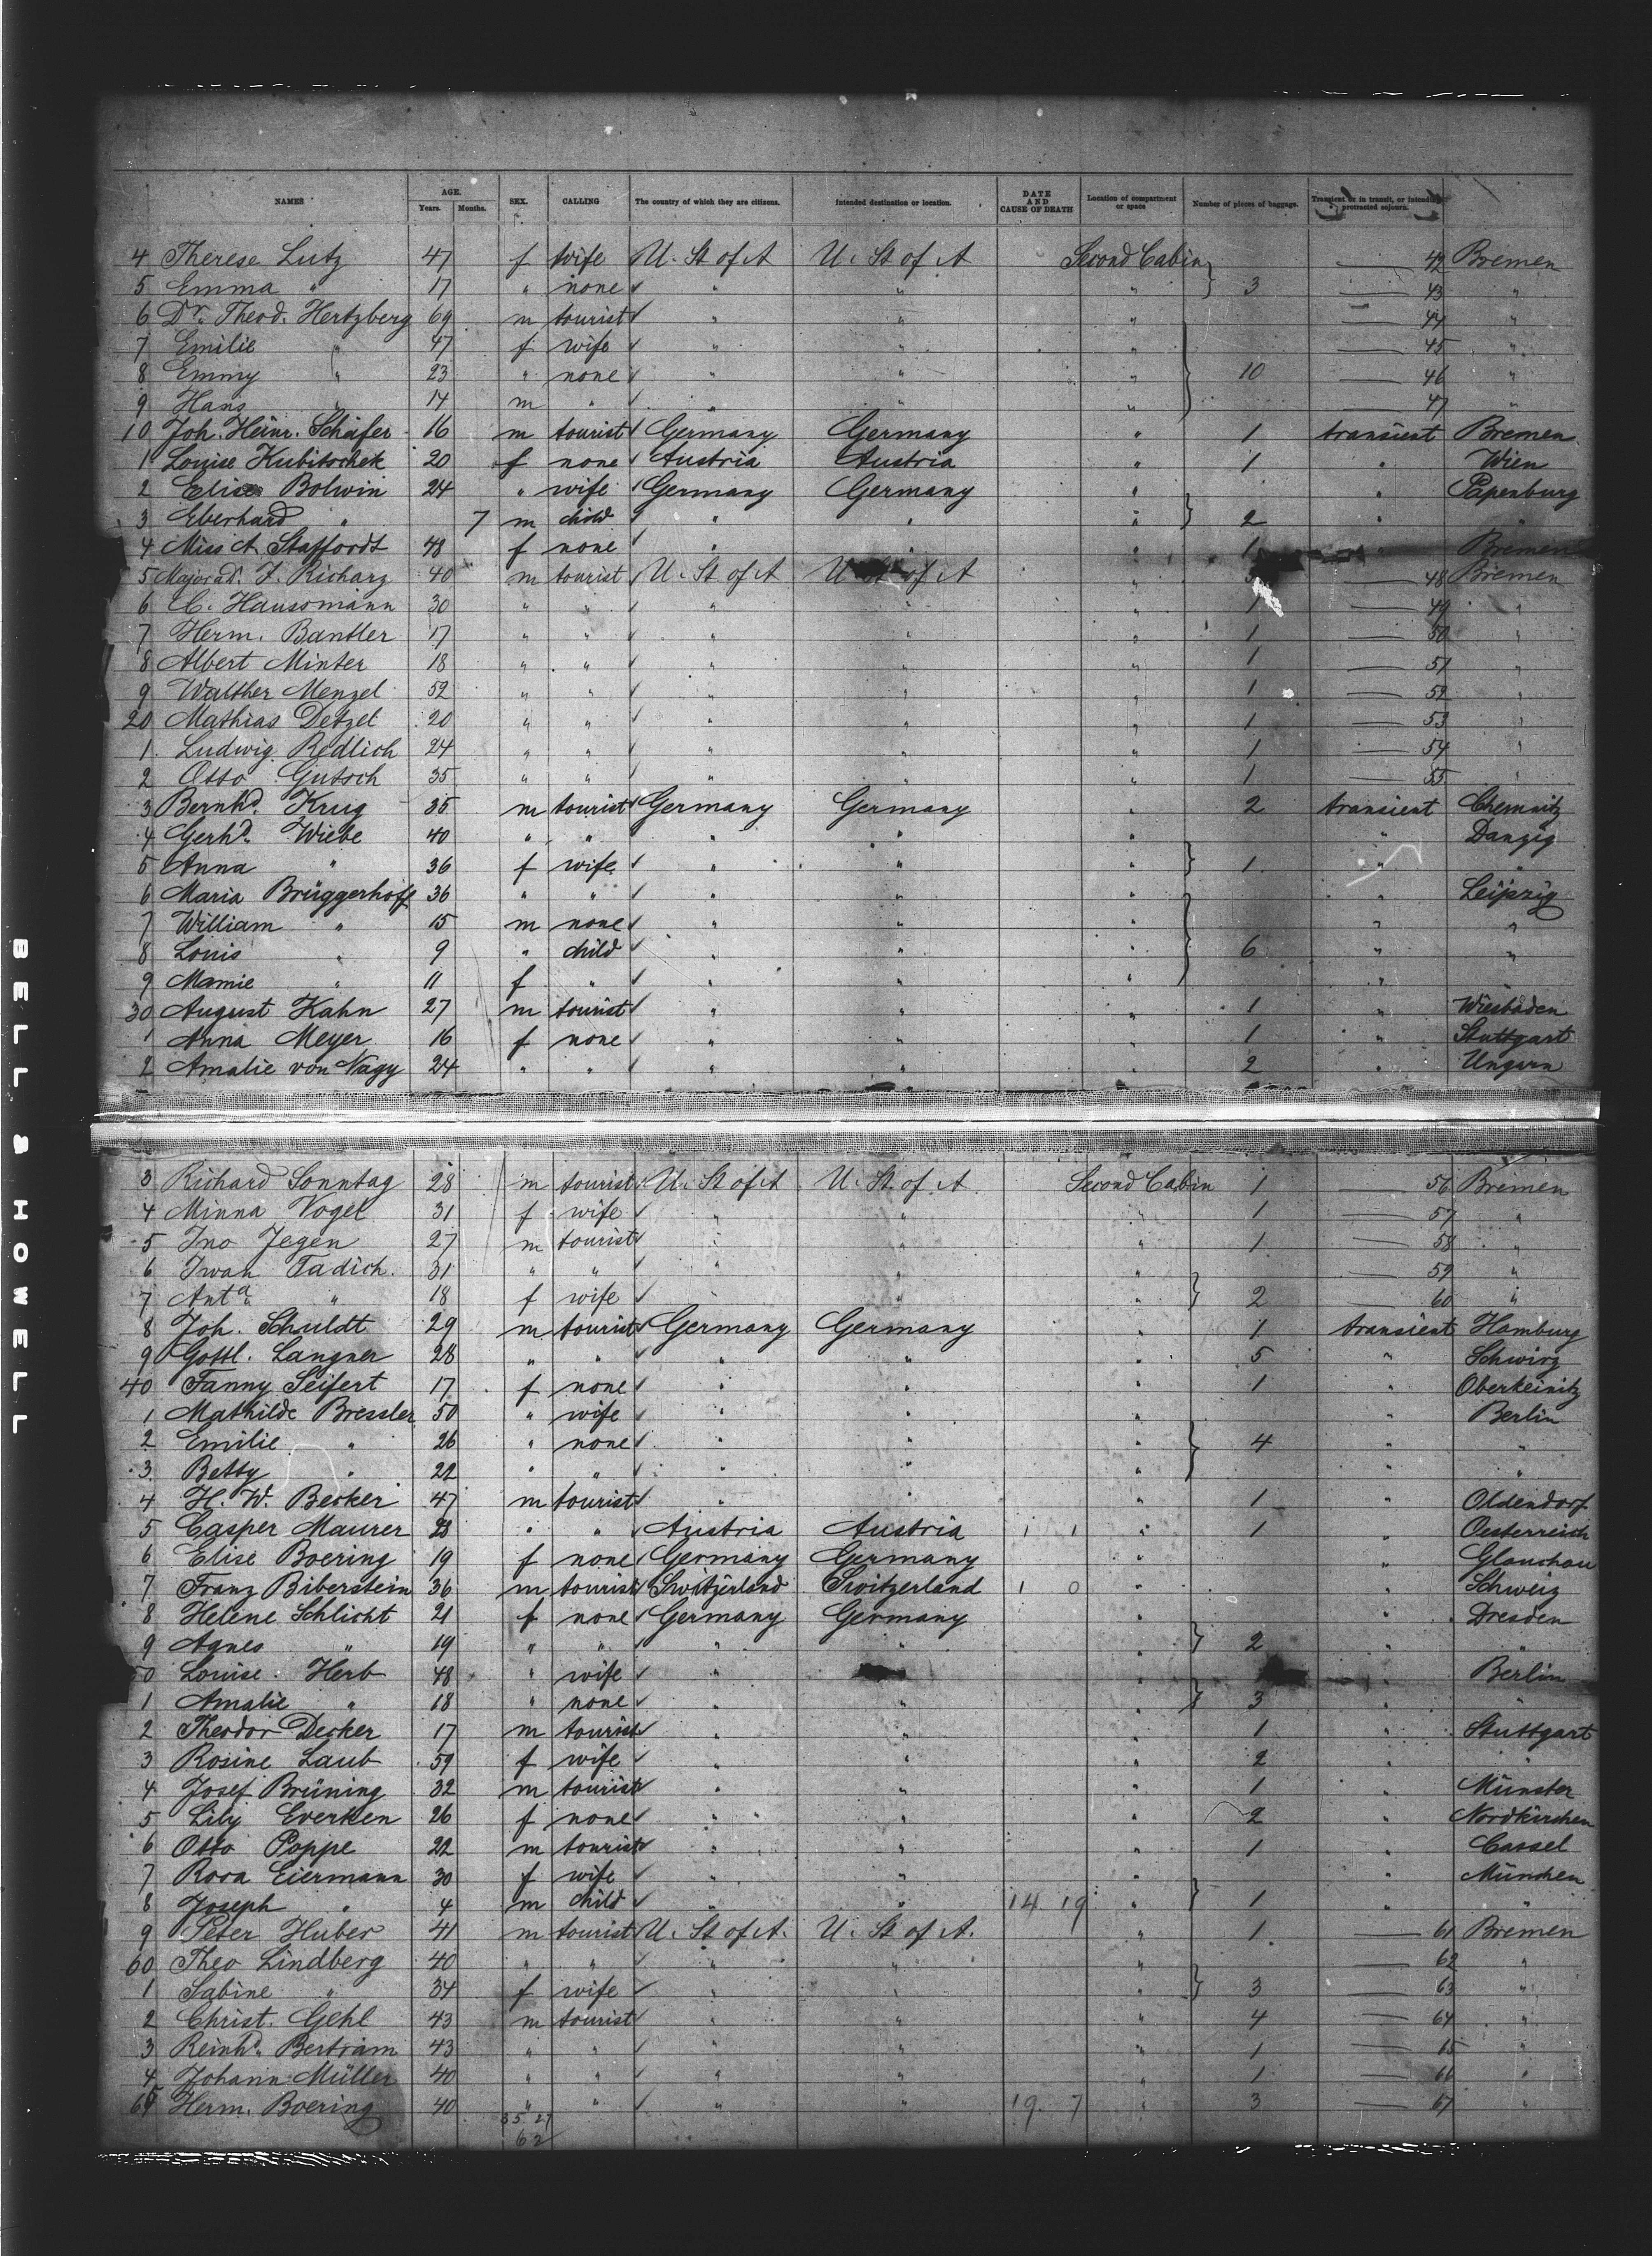 NAMES AGE. Years. Months. SEX. CALLING The country of which they are citizens. Intended destination or location. DATE AND CAUSE OF DEATH Location of compartment or space Number of pieces of baggage. Transient or in transit, or intending protracted sojourn.
4 Therese Lutz 47 f wife U. St of A U. St of A Second Cabin 42 Bremen
5 Emma " 17 " none " " " } 3 43 "
6 Dr. Theod. Hertzberg 69 m tourist " " " 44 "
7 Emilie " 47 f wife " " " 45 "
8 Emmy " 23 " none " " " } 10 46 "
9 Hans " 14 m " " " " 47 "
10 Joh. Heinr. Schäfer 16 m tourist Germany Germany " 1 transient Bremen
1 Louise Kubitschek 20 f none Austria Austria " 1 " Wien
2 Elise Bolwin 24 " wife Germany Germany " " Papenburg
3 Eberhard " 7 m child " " " } 2 "
4 Miss A. Staffordt 48 f none " " " 1 " Bremen
5 Majorad. J. Richarz 40 m tourist U. St of A U. St of A " 48 Bremen
6 C. Haussmann 30 " " " " " 1 49 "
7 Herm. Bantler 17 " " " " " 1 50 "
8 Albert Minter 18 " " " " " 1 51 "
9 Walther Menzel 52 " " " " " 1 52 "
20 Mathias Detzel 20 " " " " " 1 53 "
1 Ludwig Redlich 24 " " " " " 1 54 "
2 Otto Gutsch 35 " " " " " 1 55 "
3 Bernhd. Krug 35 m tourist Germany Germany " 2 transient Chemnitz
4 Gerhd. Wiebe 40 " " " " " " Danzig
5 Anna " 36 f wife " " " } 1 " "
6 Maria Brüggerhoff 36 " " " " " " Leipzig
7 William " 15 m none " " " " "
8 Louis " 9 " child " " " } 6 " "
9 Mamie " 11 f " " " " "
30 August Kahn 27 m tourist " " " 1 " Wiesbaden
1 Anna Meyer 16 f none " " " 1 " Stuttgart
2 Amalie von Nagy 24 " " " " " 2 " Ungarn
3 Richard Sonntag 28 m tourist U. St of A U. St. of A Second Cabin 1 56 Bremen
4 Minna Vogel 31 f wife " " " 1 57 "
5 Jno Jegen 27 m tourist " " " 1 58 "
6 Iwan Tadich 31 " " " " " 59 "
7 Anta. " 18 f wife " " " } 2 60 "
8 Joh. Schuldt 29 m tourist Germany Germany " 1 transient Hamburg
9 Gottl. Langner 28 " " " " " 5 " Schwirz
40 Fanny Seifert 17 f none " " " 1 " Oberkeinitz
1 Mathilde Bressler 50 " wife " " " " Berlin
2 Emilie " 26 " none " " " } 4 " "
3 Betty " 22 " " " " " "
4 H. W. Becker 47 m tourist " " " 1 " Oldendorf
5 Casper Maurer 28 " " Austria Austria 1 1 " 1 " Oesterreich
6 Elise Boering 19 f none Germany Germany " " Glauchau
7 Franz Biberstein 36 m tourist Switzerland Switzerland 1 0 " " Schweiz
8 Helene Schlicht 21 f none Germany Germany " " Dresden
9 Agnes " 19 " " " " " } 2 " "
50 Louise Herb 48 " wife " " " Berlin
1 Amalie " 18 " none " " " } 3 " "
2 Theodor Decker 17 m tourist " " " 1 " Stuttgart
3 Rosine Laub 59 f wife " " " 2 " "
4 Josef Brüning 32 m tourist " " " 1 " Münster
5 Lily Everken 26 f none " " " 2 " Nordkirchen
6 Otto Poppe 22 m tourist " " " 1 " Cassel
7 Rosa Eiermann 30 f wife " " " " München
8 Joseph " 4 m child " " 14 19 " } 1 " "
9 Peter Huber 41 m tourist U. St of A. U. St of A. " 1 61 Bremen
60 Theo Lindberg 40 " " " " " 62 "
1 Sabine " 34 f wife " " " } 3 63 "
2 Christ. Gehl 43 m tourist " " " 4 64 "
3 Reinhd. Bertram 43 " " " " " 1 65 "
4 Johann Müller 40 " " " " " 1 66 "
65 Herm. Boering 40 " " " " 19 7 " 3 67 "
35 27
62
BELL & HOWELL